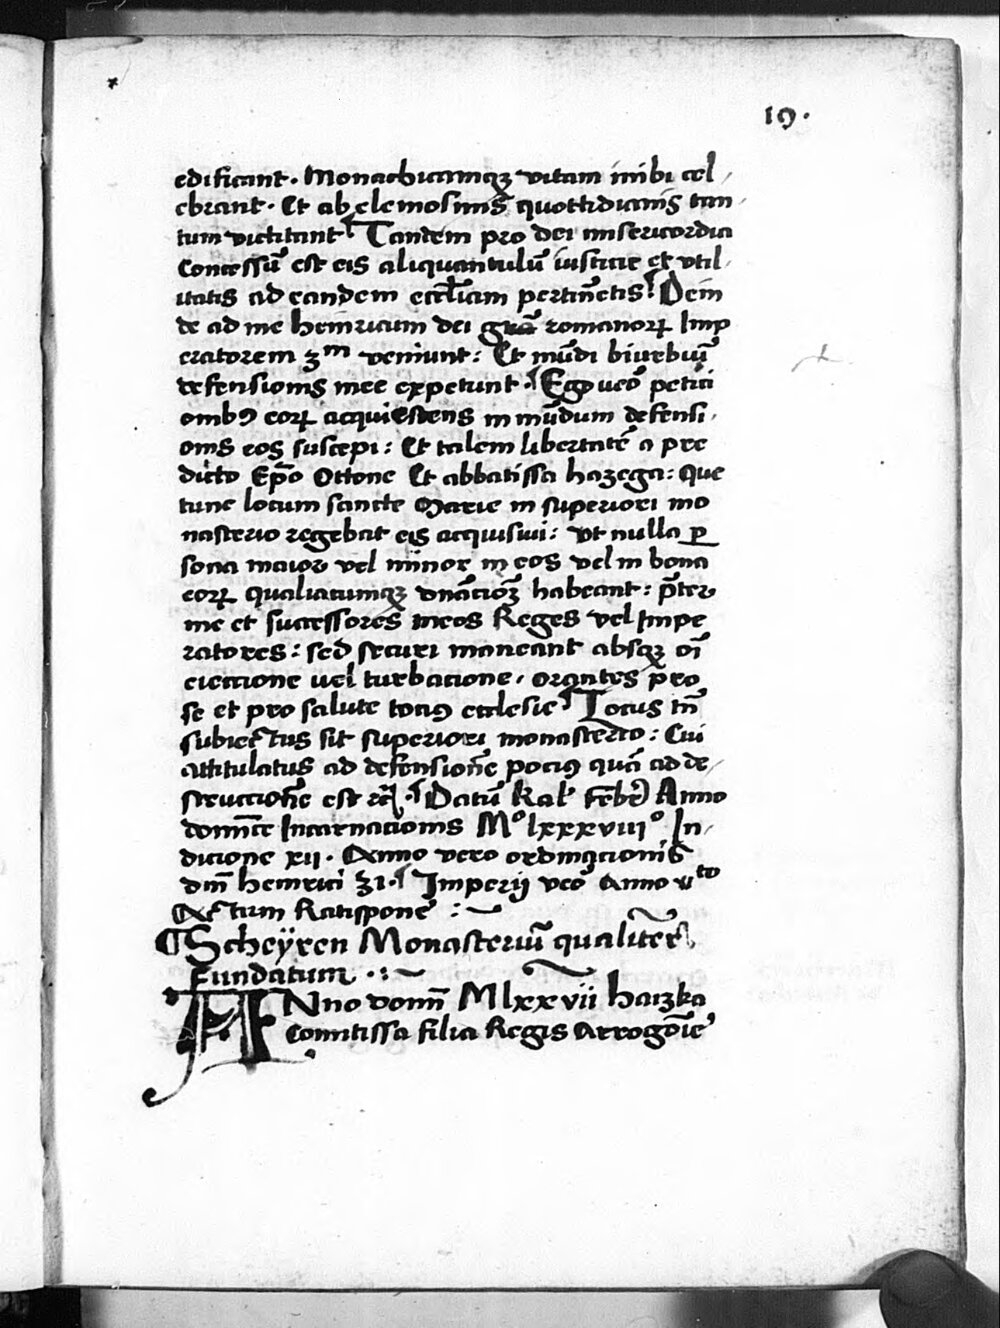 19.
edificant. Monachicamqꝫ vitam inibi cel
ebrant. Et ab elemosinis quottidianis tan
tum victitant Tandem pro dei misericordia
Concessū est eis aliquantulū iusticie et vtil
itatis ad eandem eccl̄iam pertinētis Dein
de ad me heinricum dei grā romanorꝝ Imp
eratorem 3m veniunt: Et mūdi biurebuꝫ
defensionis mee expetunt Ego ueō petici
onibꝰ eorꝝ acquiescens in mūdum defensi
onis eos suscepi: Et talem libertatē a pre
dicto Ep̄o Ottone Et abbatissa hazega: Que
tunc locum sancte Marie in superiori mo
nasterio regebat eis acquisiui: vt nulla ꝑ
sona maior vel minor in eos vel in bona
eorꝝ qualiacumqꝫ dn̄acioꝫ habeant: p̄ter
me et successores meos Reges vel Impe
ratores: sed securi maneant absqꝫ oī
eieccione uel turbacione. orantes pro
se et pro salute tociꝰ ecclesie Locus tn̄
subiectus sit superiori monasterio: Cui
attitulatus ad defensionē pociꝰ quā ad de
struccionē est Datū kal' febr' Anno
domīce Incarnacionis Mº lxxxviiiº In
dicione xii. Anno vero ordinacionis
dn̄i heinrici 31. Imperij ueō Anno vto
Actum Ratispone :~
Scheÿren Monasteriū qualiter
fundatum .:~
ANno domī Mlxxvii haizka
Comitissa filia Regis Arrogōie